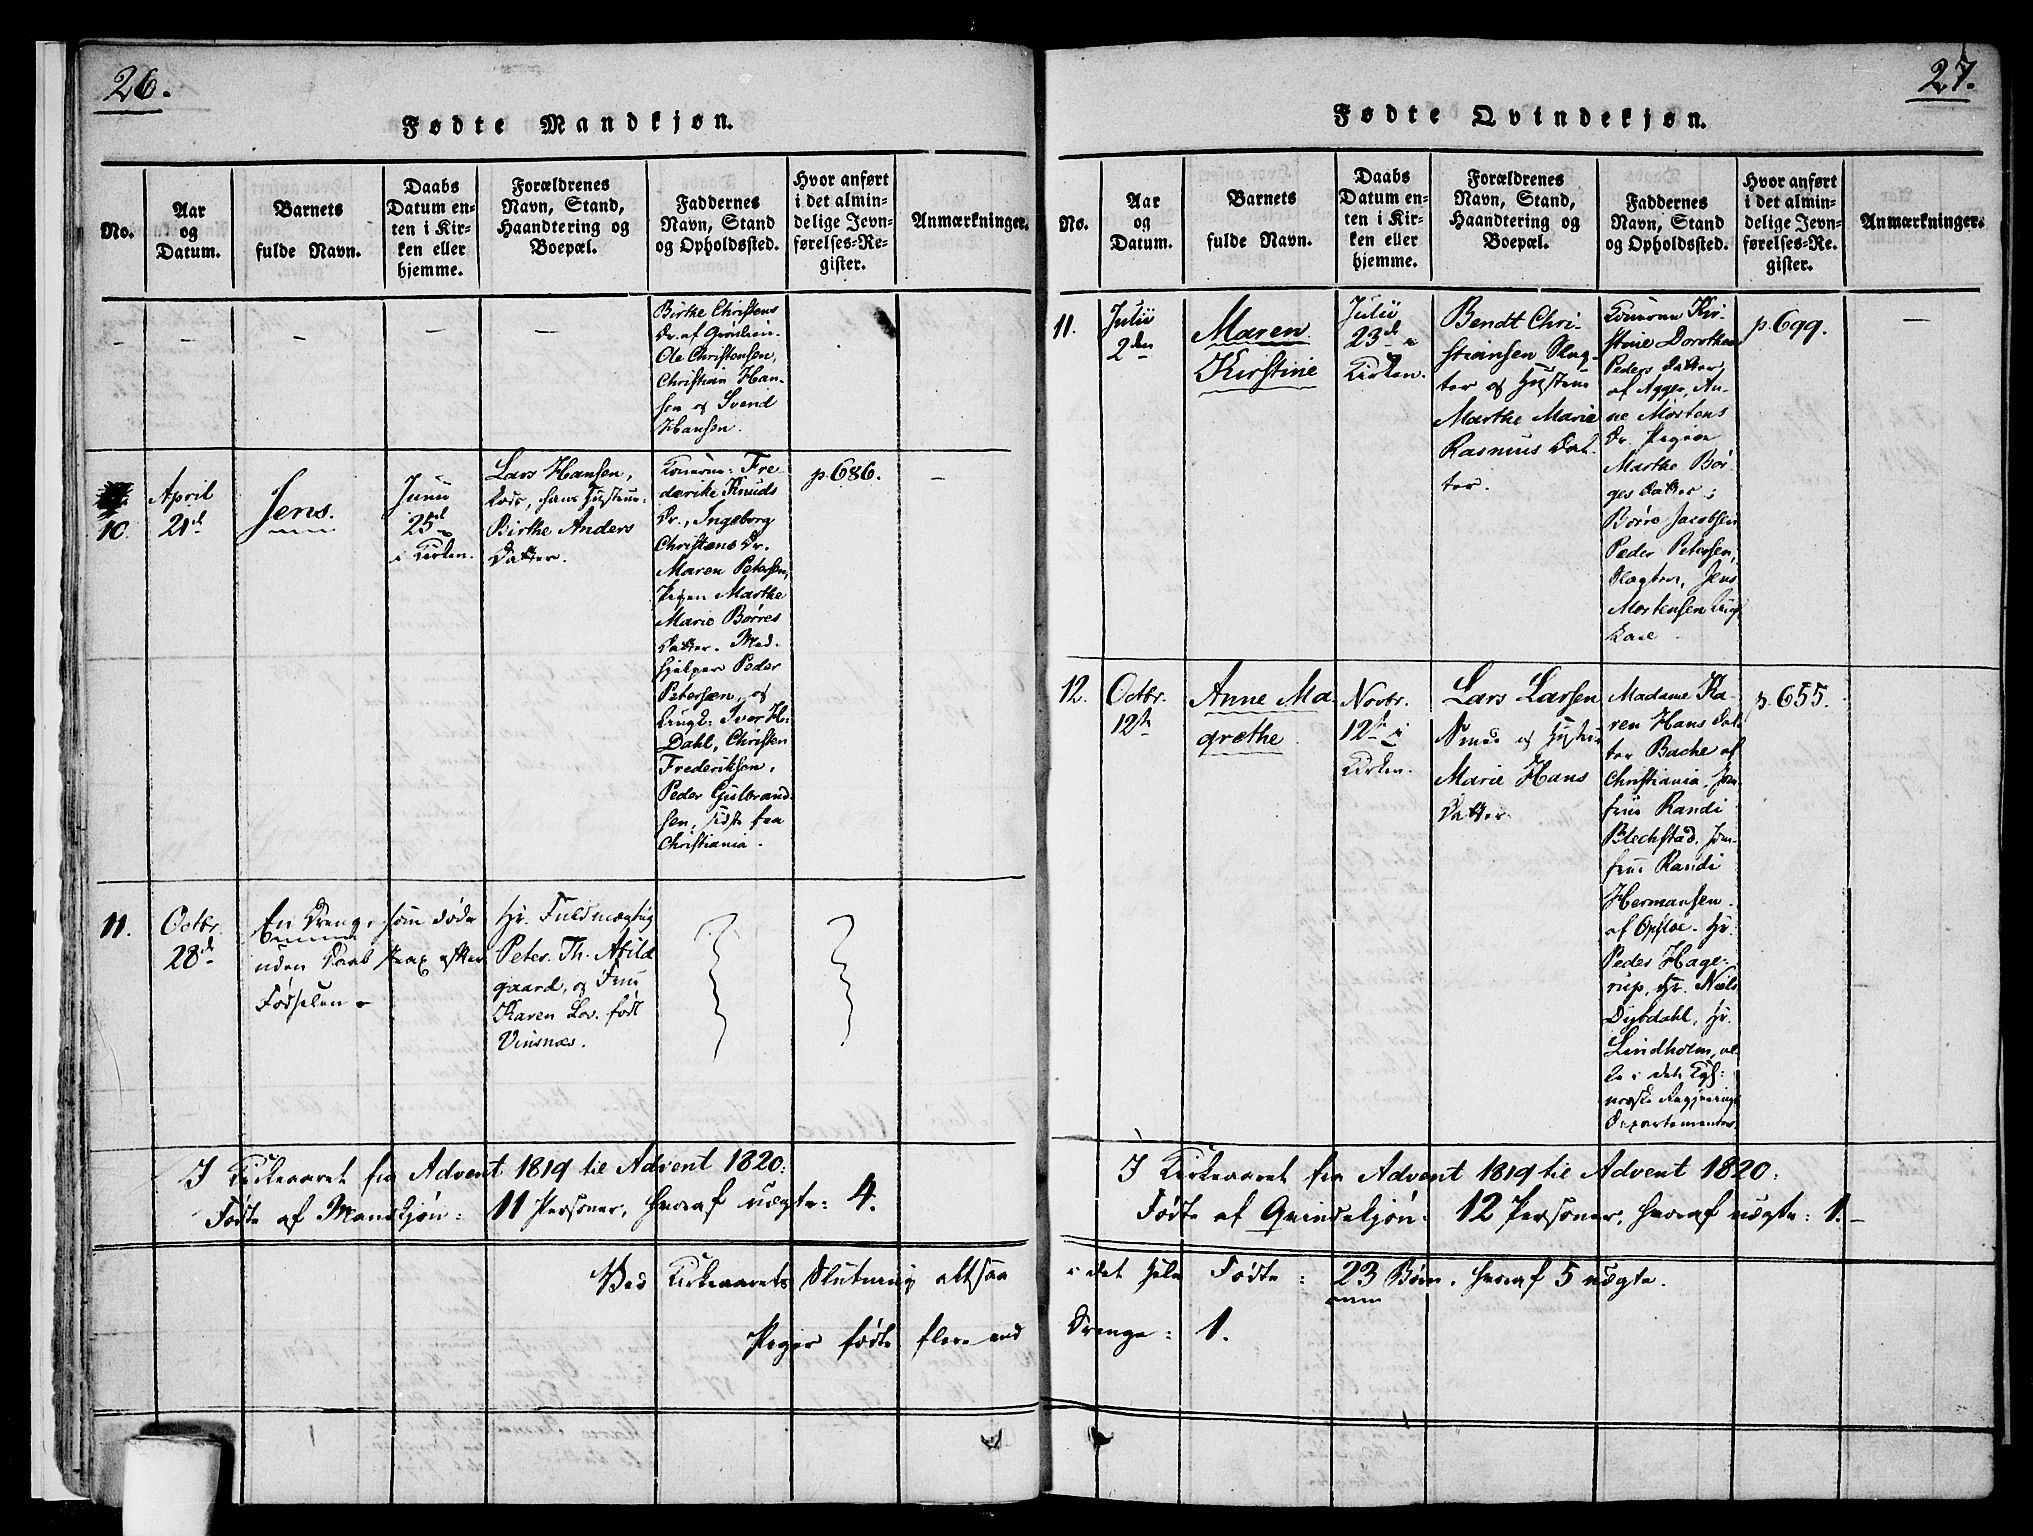 26.
Fødte Mandkjøn.
No.
Aar
og
Datum.
Barnets
fulde Navn.
Daabs
Datum en-
ten i Kir-
ken eller
hjemme.
Forældrenes
Navn, Stand,
Haandtering og
Boepæl.
Faddernes
Navn, Stand
og Opholdssted.
Hvor anført
i det almin-
delige Jevn-
førelses-Re-
gister.
Anmærkninger.
Birthe Christens
Dr. af
Ole Christensen,
Christian Han-
sen og Svend
Hansen.
10.
April
21d
Jens.
Junii
25d
i Kirken.
Lars Hansen,
hans Hustrue
Birthe Anders
Datter.
Konerne: Fre-
derike Knuds
Dr., Ingeborg
Christens Dr.
Maren Petersen,
Pigen Marthe
Marie Børres
Datter. Med-
hjelper Peder
Petersen, og
Ungk: Iver H.
Dahl, Christen
Frederiksen,
Peder Gulbrand-
sen, sidste fra
Christiania.
p. 686.
11.
Octbr.
28d
En Dreng, som døde
uden Daab strax efter
Fødselen.
Hr. Fuldmægtig
Peter Th. Abild
gaard, og Frue
Karen Lov. født
Vinsnæs.
I Kirkeaaret fra Advent 1819 til Advent 1820:
Fødte af Mandkjøn: 11 Personer, hvoraf uægte: 4.
Ved Kirkeaarets Slutning altsaa
Piger fødte flere end
27.
Fødte Qvindekjøn.
No.
Aar
og
Datum.
Barnets
fulde Navn.
Daabs
Datum en-
ten i Kir-
ken eller
hjemme.
Forældrenes
Navn, Stand,
Haandtering og
Boepæl.
Faddernes
Navn, Stand
og Opholdssted.
Hvor anført
i det almin-
delige Jevn-
førelses-Re-
gister.
Anmærkninger.
11.
Julii
2den
Maren
Kirstine
Julii
23d i
Kirken.
Bendt Chri-
stiansen Slag-
ter og Hustrue
Marthe Marie
Rasmus Dat-
ter.
Konerne Kir-
stine Dorothea
Peders Datter
af Agger, An-
ne Mortens
Dr. Pigen
Marthe Bør-
ges Datter;
Børre Jacobsen
Peder Petersen,
Slagter, Jens
Mortensen Ung-
karl
p. 699.
12.
Octbr.
12te
Anne Ma-
grethe
Novbr.
12te i
Kirken.
Lars Larsen
og Hustrue
Marie Hans
Datter.
Madame Ka-
ren Hans Dat-
ter Bache af
Christiania, Jom-
frue Randi
Blechstad, Jom-
frue Randi
Hermansen
af Opsloe. Hr.
Peder Hage-
rup, Hr. Niels
Dybdahl, Hr.
Lindholm, al-
le i det Kgl:
norske Regjerings
Departementer
p. 655.
I Kirkeaaret fra Advent 1819 til Advent 1820:
Fødte af Qvindekjøn: 12 Personer, hvoraf uægte: 1.
i det hele Fødte: 23 Børn, hvoraf 5 uægte.
Drenge: 1.